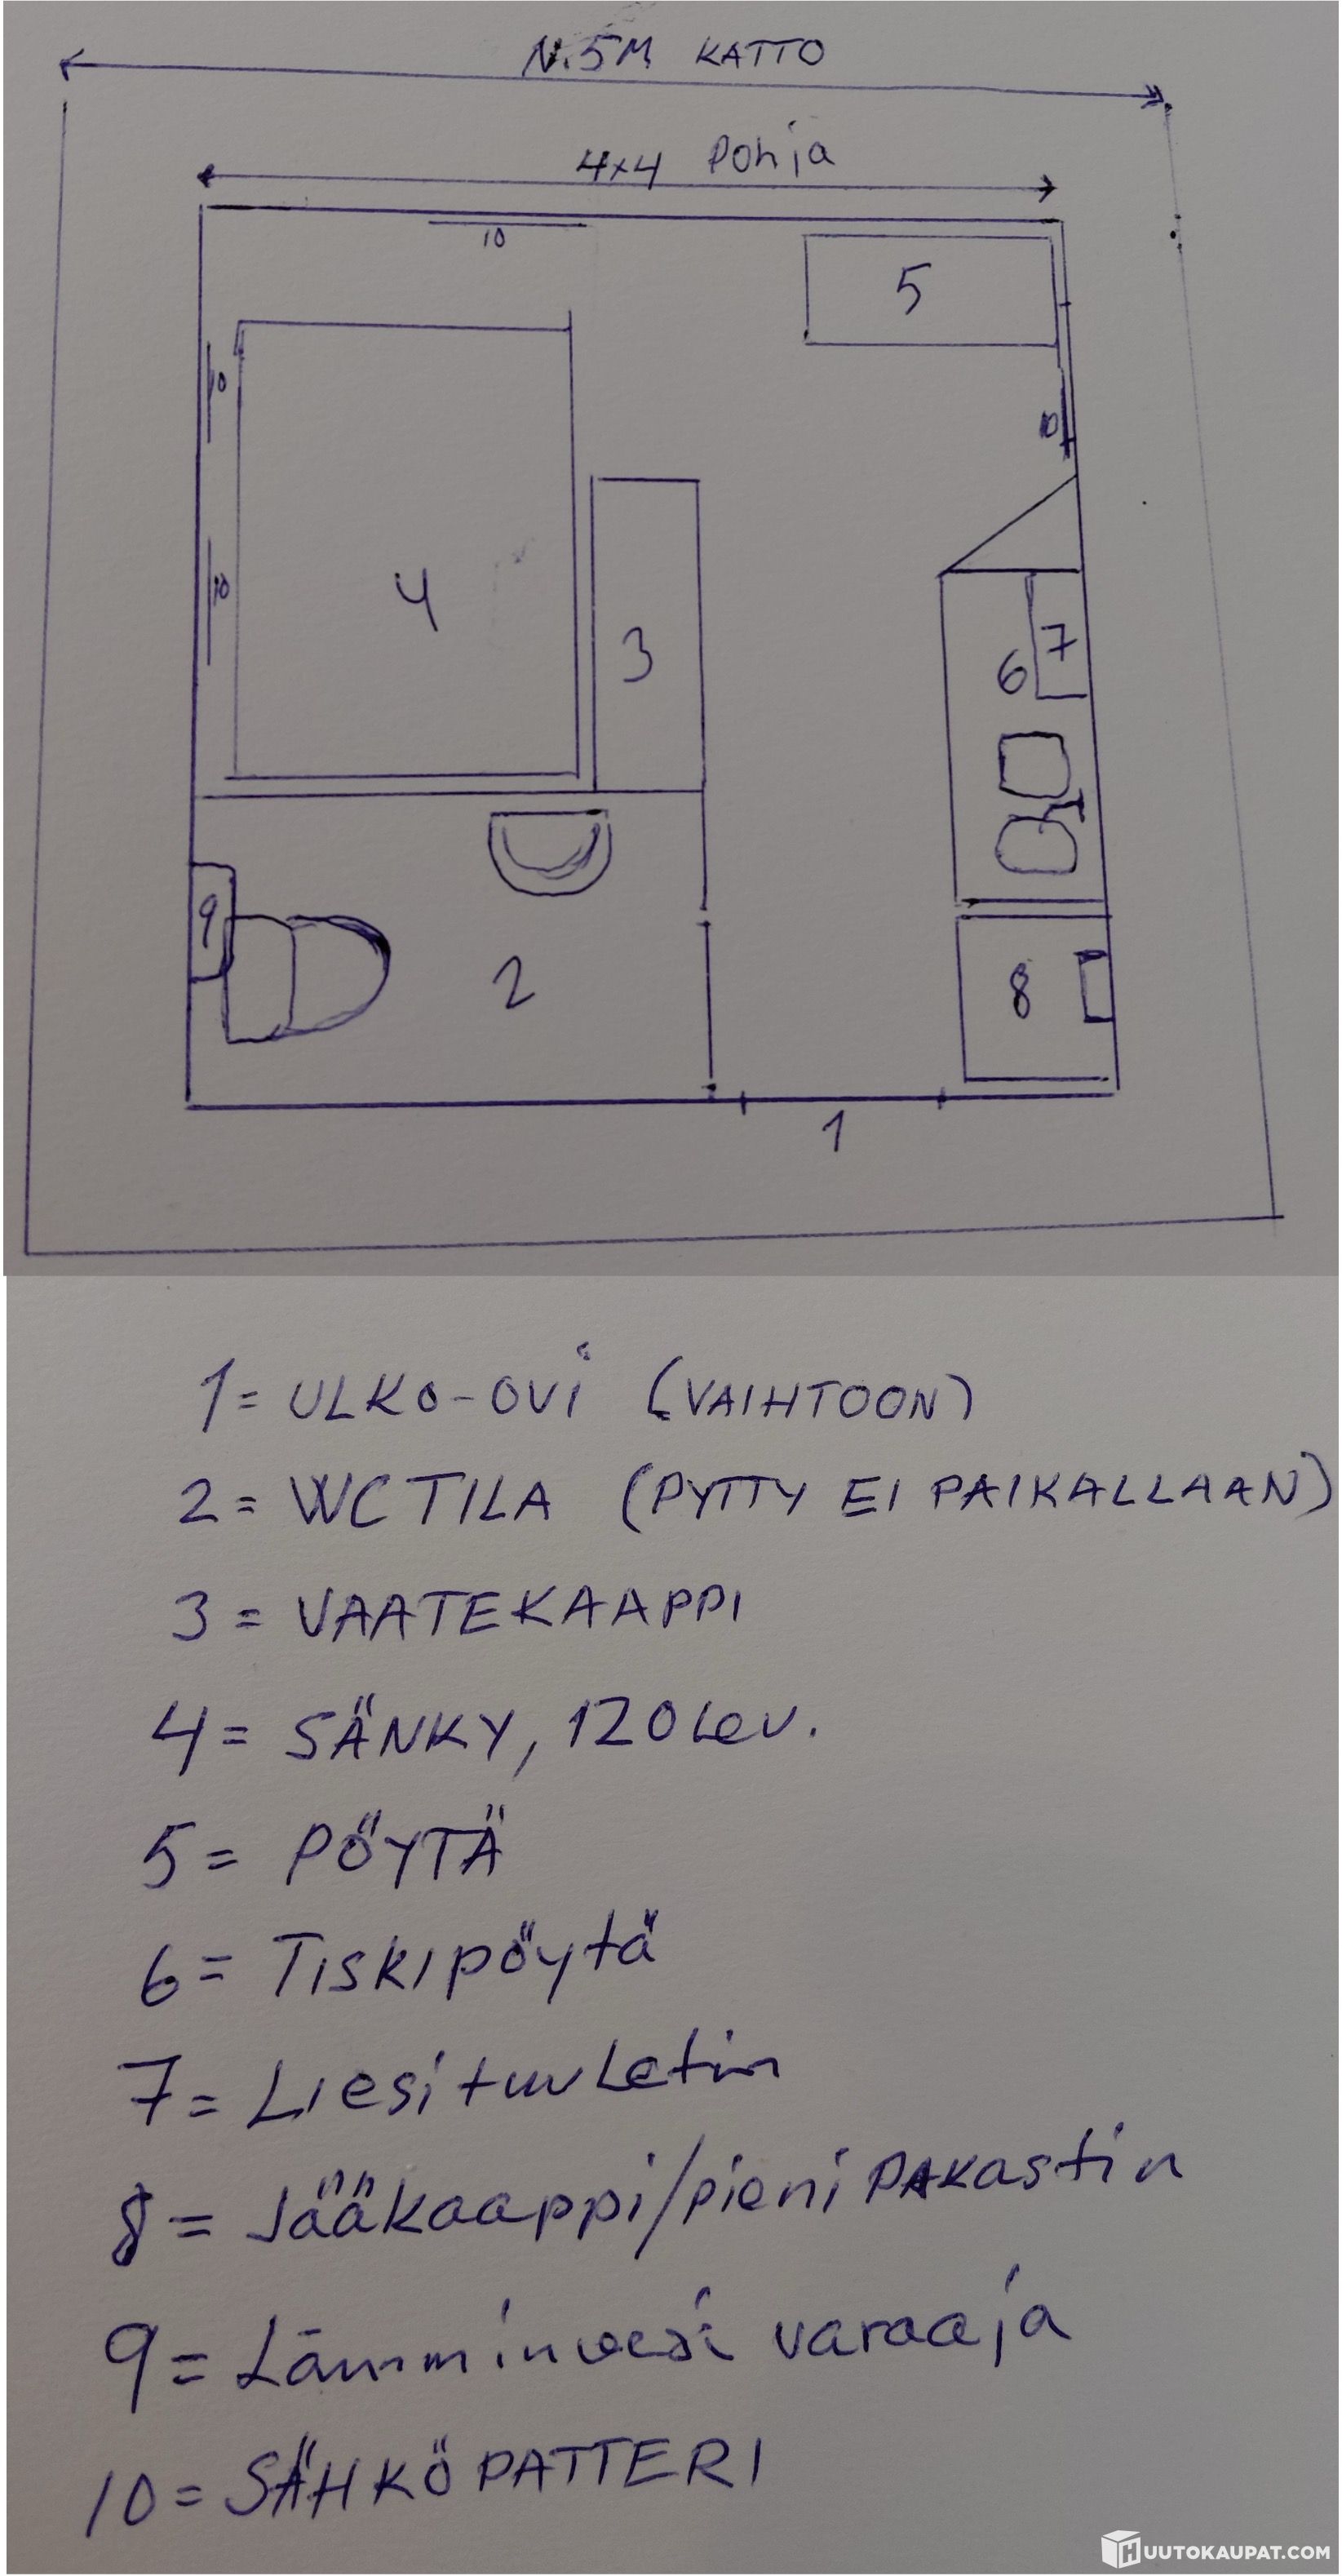 N. 5M KATTO
4x4 Pohja
10
5
10
10
10
4
3
6
7
9
2
8
1
1 = ULKO-OVI (VAIHTOON)
2 = WC TILA (PYTTY EI PAIKALLAAN)
3 = VAATEKAAPPI
4 = SÄNKY, 120 Lev.
5 = PÖYTÄ
6 = Tiskipöytä
7 = Liesituuletin
8 = Jääkaappi/pieni PAKastin
9 = Lämminvesi varaaja
10 = SÄHKÖPATTERI
HUUTOKAUPAT.COM